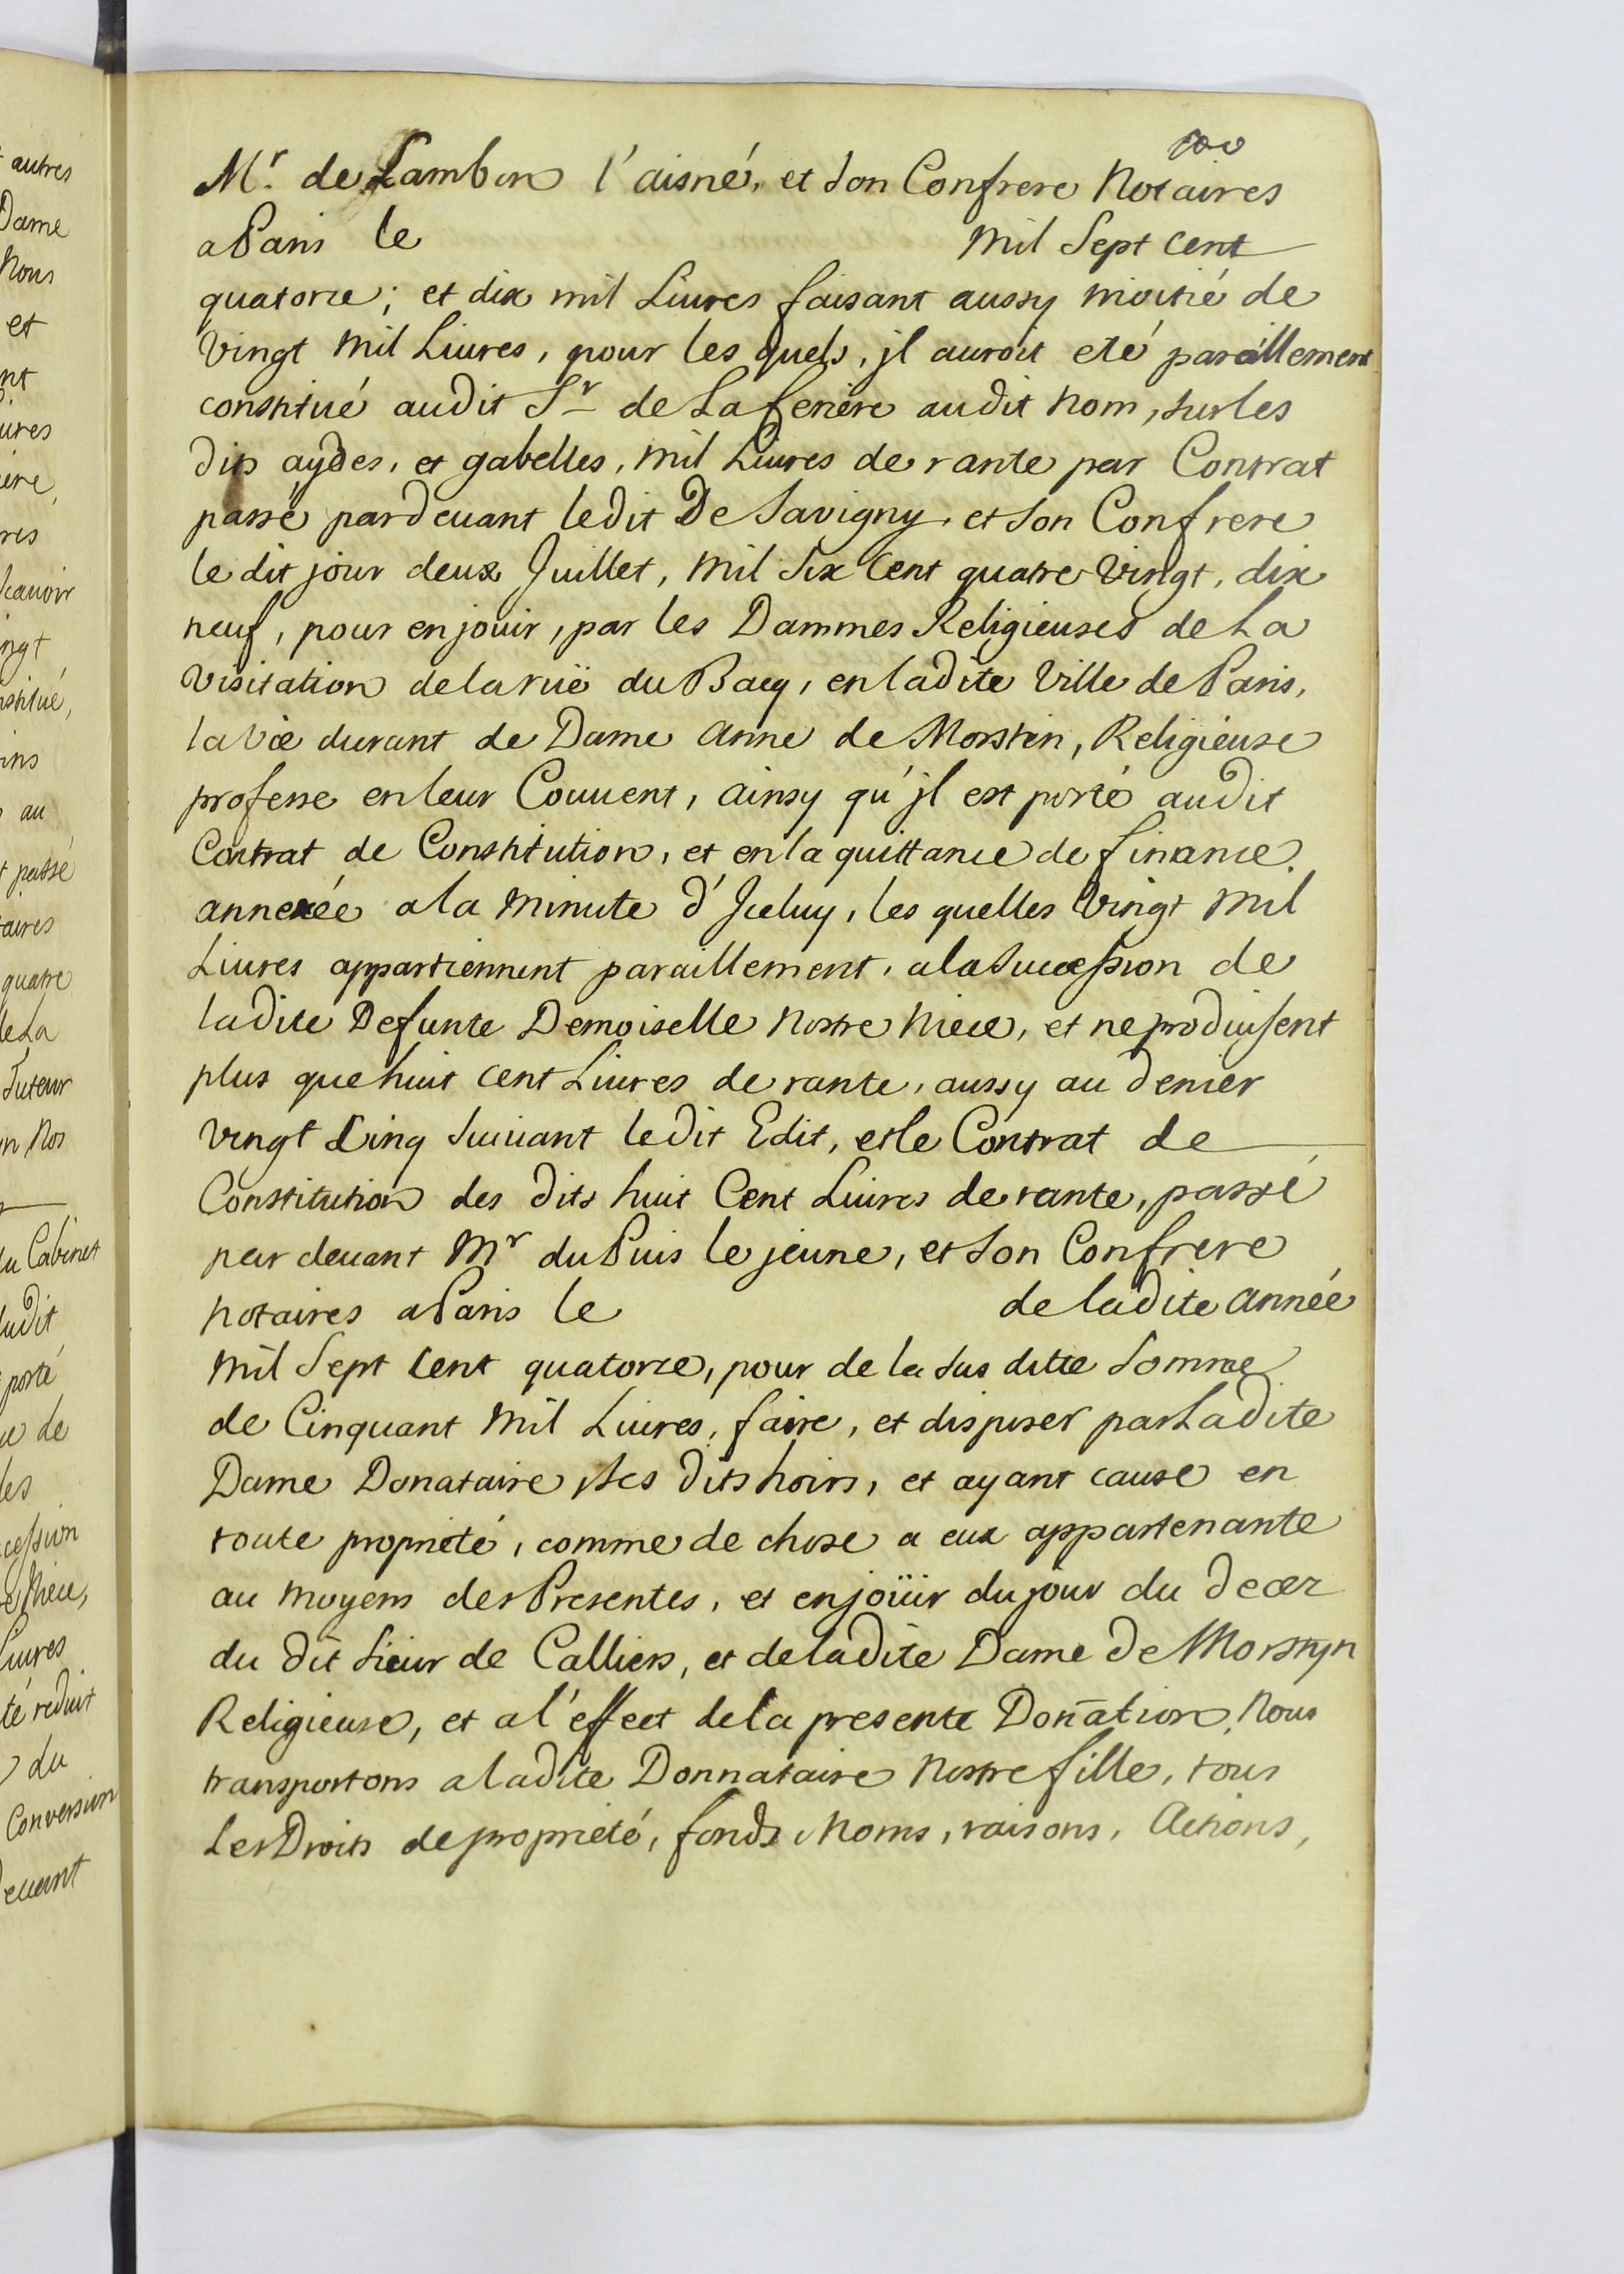 Mr. de Lambon l'aisné, et son Confrere Notaires
a Paris le mil Sept cent
quatorze; et dix mil Liures faisant aussy moitié de
vingt mil Liures, pour les quels, jl auroit eté pareillement
constitué audit Sr de La feriere audit nom, sur les
dits aydes, et gabelles, mil Liures de rante par Contrat
passé pardeuant ledit De Savigny, et son Confrere
le dit jour deux Juillet, mil Six Cent quatre vingt, dix
neuf, pour en jouir, par les Dammes Religieuses de La
visitation de la ruë du Bacq, en ladite ville de Paris,
la vie durant de Dame anne de Morstin, Religieuse
professe en leur Couuent, ainsy qu'jl est porté audit
Contrat de Constitution, et en la quittance de finance
annexée a la minute d'Jceluy, les quelles vingt mil
Liures appartiennent paraillement, a la Succession de
ladite Defunte Demoiselle nostre niece, et ne produisent
plus que huit cent Liures de rante, aussy au denier
vingt Cinq suiuant ledit Edit, et le Contrat de
Constitution des dits huit Cent Liures de rante, passé
par deuant Mr du Puis le jeune, et son Confrere
notaires a Paris le de ladite année
mil Sept Cent quatorze, pour de la sus ditte somme
de Cinquant mil Liures, faire, et disposer par Ladite
Dame Donataire, ses dits hoirs, et ayant cause en
toute proprieté, comme de chose a eux appartenante
au moyens des Presentes, et en joüir du jour du decez
du dit sieur de Calliers, et de ladite Dame de Morstyn
Religieuse, et a l'effect de la presente Donãtion, Nous
transportons a ladite Donnataire nostre fille, tous
Les Droits de proprieté, fonds, Noms, raisons, Actions,
autres
Dame
Nous
et
nt
ures
iere,
res
scauoir
ingt
nstitué,
ins
au
t passé
taires
quatre
de La
Tuteur
n Nos
du Cabinet
ludit
porté
u de
les
cession
e Niece,
Liures
té reduit
du
Conversion
deuant